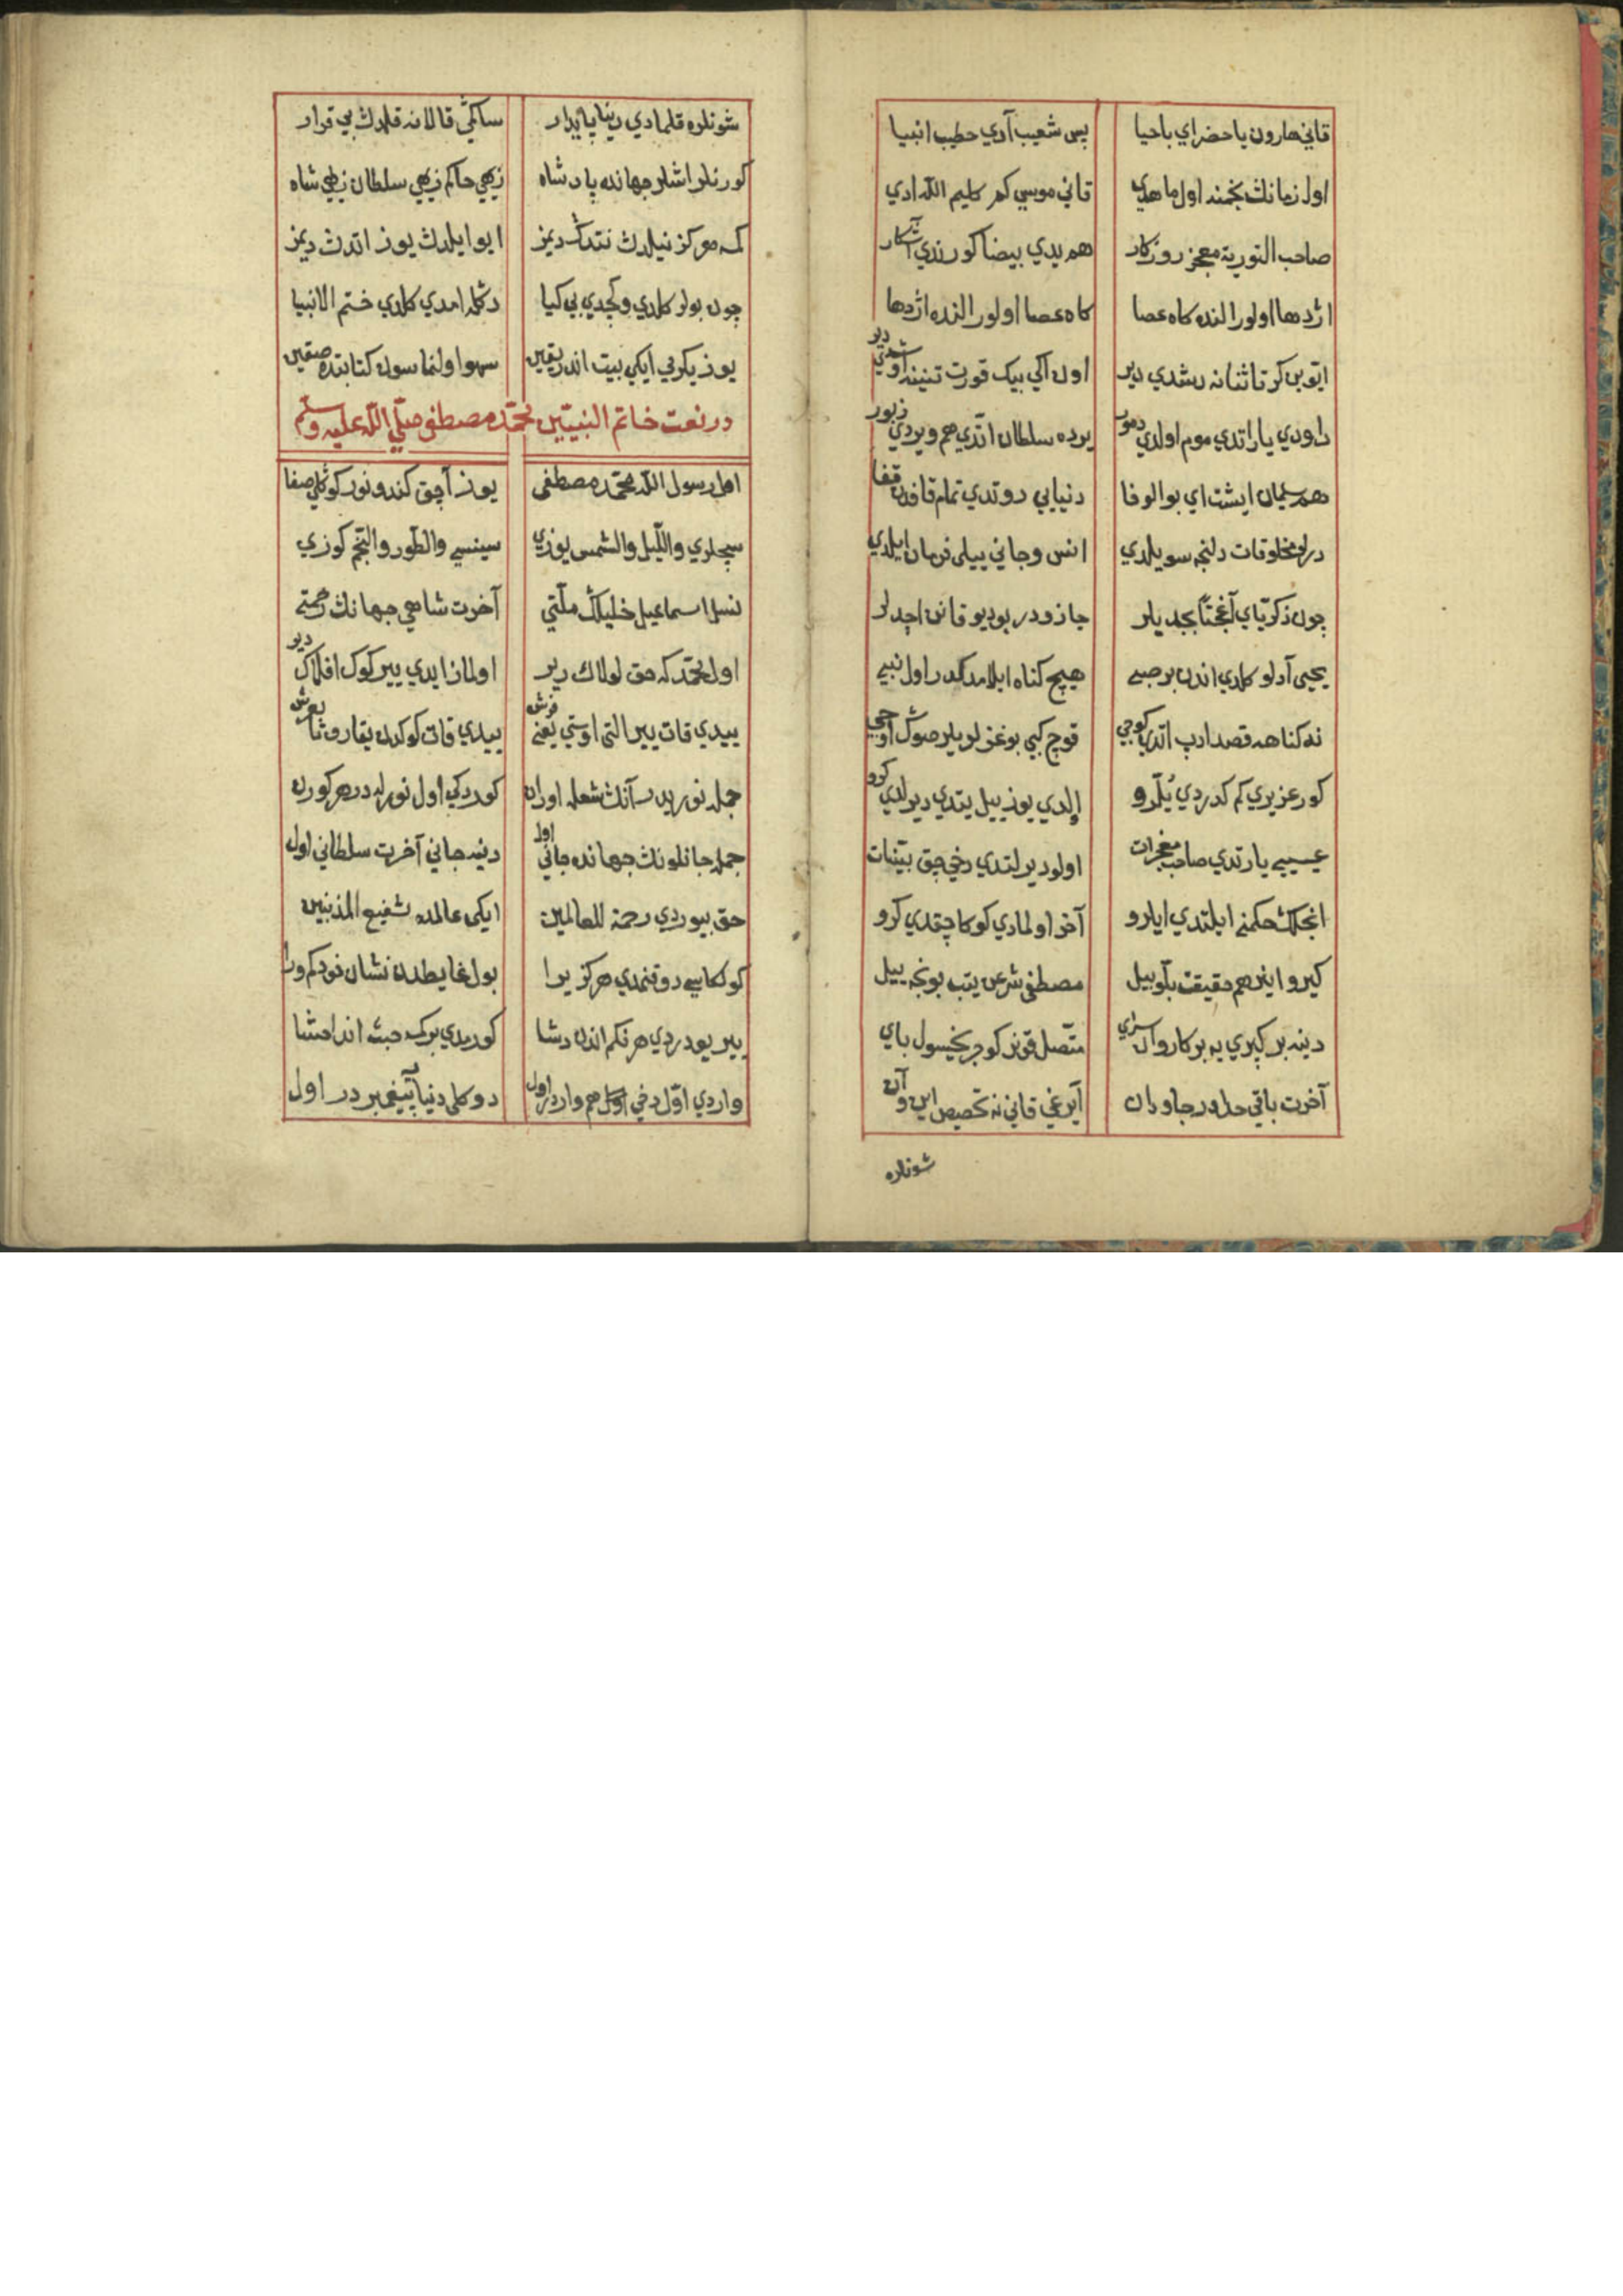 قاني هارون يا حضراي باحيا پس شعيب آدي حطيب انبيا
اول زمانڭ بخمنه اول ماهدي قاني موسي كم كليم الله ادي
صاحب التورية معجز روزكار هم يدي بيضا كورندي آشكار
اژدها اولور النده كاه عصا كاه عصا اولور النده اژدها
ايوبن كرتا ثنانه دشدي دير اون ايكي بيك قورت تننده اوشدي دير
داودي ياراتدي موم اولدي دمور يرده سلطان اتدي هم ويردي زبور
هم سليمان ايشت اي بوالوفا دنيايي دوتدي تمام قافدن قفا
درلو مخلوقات دلنجه سويلدي انس وجاني ييلي فرمان ايلدي
چون ذكرياي آغجتا بجديلر
يحيي آدلو كلدي اندن بر صبي هيچ كناه ايلامدكدر اول نبي
نه كناهه قصد ادب اتديا كوجي قوچ كبي بوغزلوديلر صوڭ اوجي
كور عزيري كم كدردي يلرو اولدي يوز ييل يتدي ديرلدي كرو
عيسيي يارتدي صاحب معجزات اولو ديرلتدي دخي چق بينات
انجلڭ حكمنه ايلتدي ايلرو آخر اولمادي كوكا چقدي كرو
كيرو اينر هم حقيقت بلو بيل مصطفي شرعن يتب بونجه ييل
دينه بر كپري يه بر كاروان سراي متصل قونر كوجر يخسول باي
آخرت باقي حلدر جاودان آيرغي قاني نه تخصيص اين وآن
شونلره
شونلره قلمادي دنيا پايدار ساكمي قالانه قلدڭ بي قرار
كورنلر اشلر جهانده پادشاه زهي حاكم زهي سلطان زهي شاه
كمه مركز نيلدڭ نتدڭ ديمز ايو ايلدڭ يوز اتدڭ ديمز
چون بولر كلدي وكچدي بي كيا دڭله امدي كلدي ختم الانبيا
يوز يكرمي ايكي بيت اندر يقين سهو اولنماسون كتابتده صقين
در نعت خاتم النبيين محمد مصطفي صلي الله عليه وسلم
اول رسول الله محمد مصطفي يوز آچق كندو نور كوڭلي صفا
سچلري والليل والشمس يوزي سينسي والطور والنجم كوزي
نسل اسماعيل خليلڭ ملتي آخرت شاهي جهانڭ رحمتي
اول محمد كه حق لولاك دير اولمازايدي يير كوك افلاك دير
ييدي قات يير التي اوستي يعني فرش ييدي قات كوكدن يقارو تا بعرش
جمله نورين آنڭ شعله اوران كوردكي اول نورله در هر كورن
جمله جانلونڭ جهانده جاني اول دينه جاني آخرت سلطاني اول
حق بيوردي رحمة للعالمين ايكي عالمده شفيع المذنبين
كولكاسي دوقنمدي هركز يرا
يير يودردي هر نكم اندن دشا
واردي اول دخي اول هم واردر اول دوكلي دنيا پيغمبردر اول